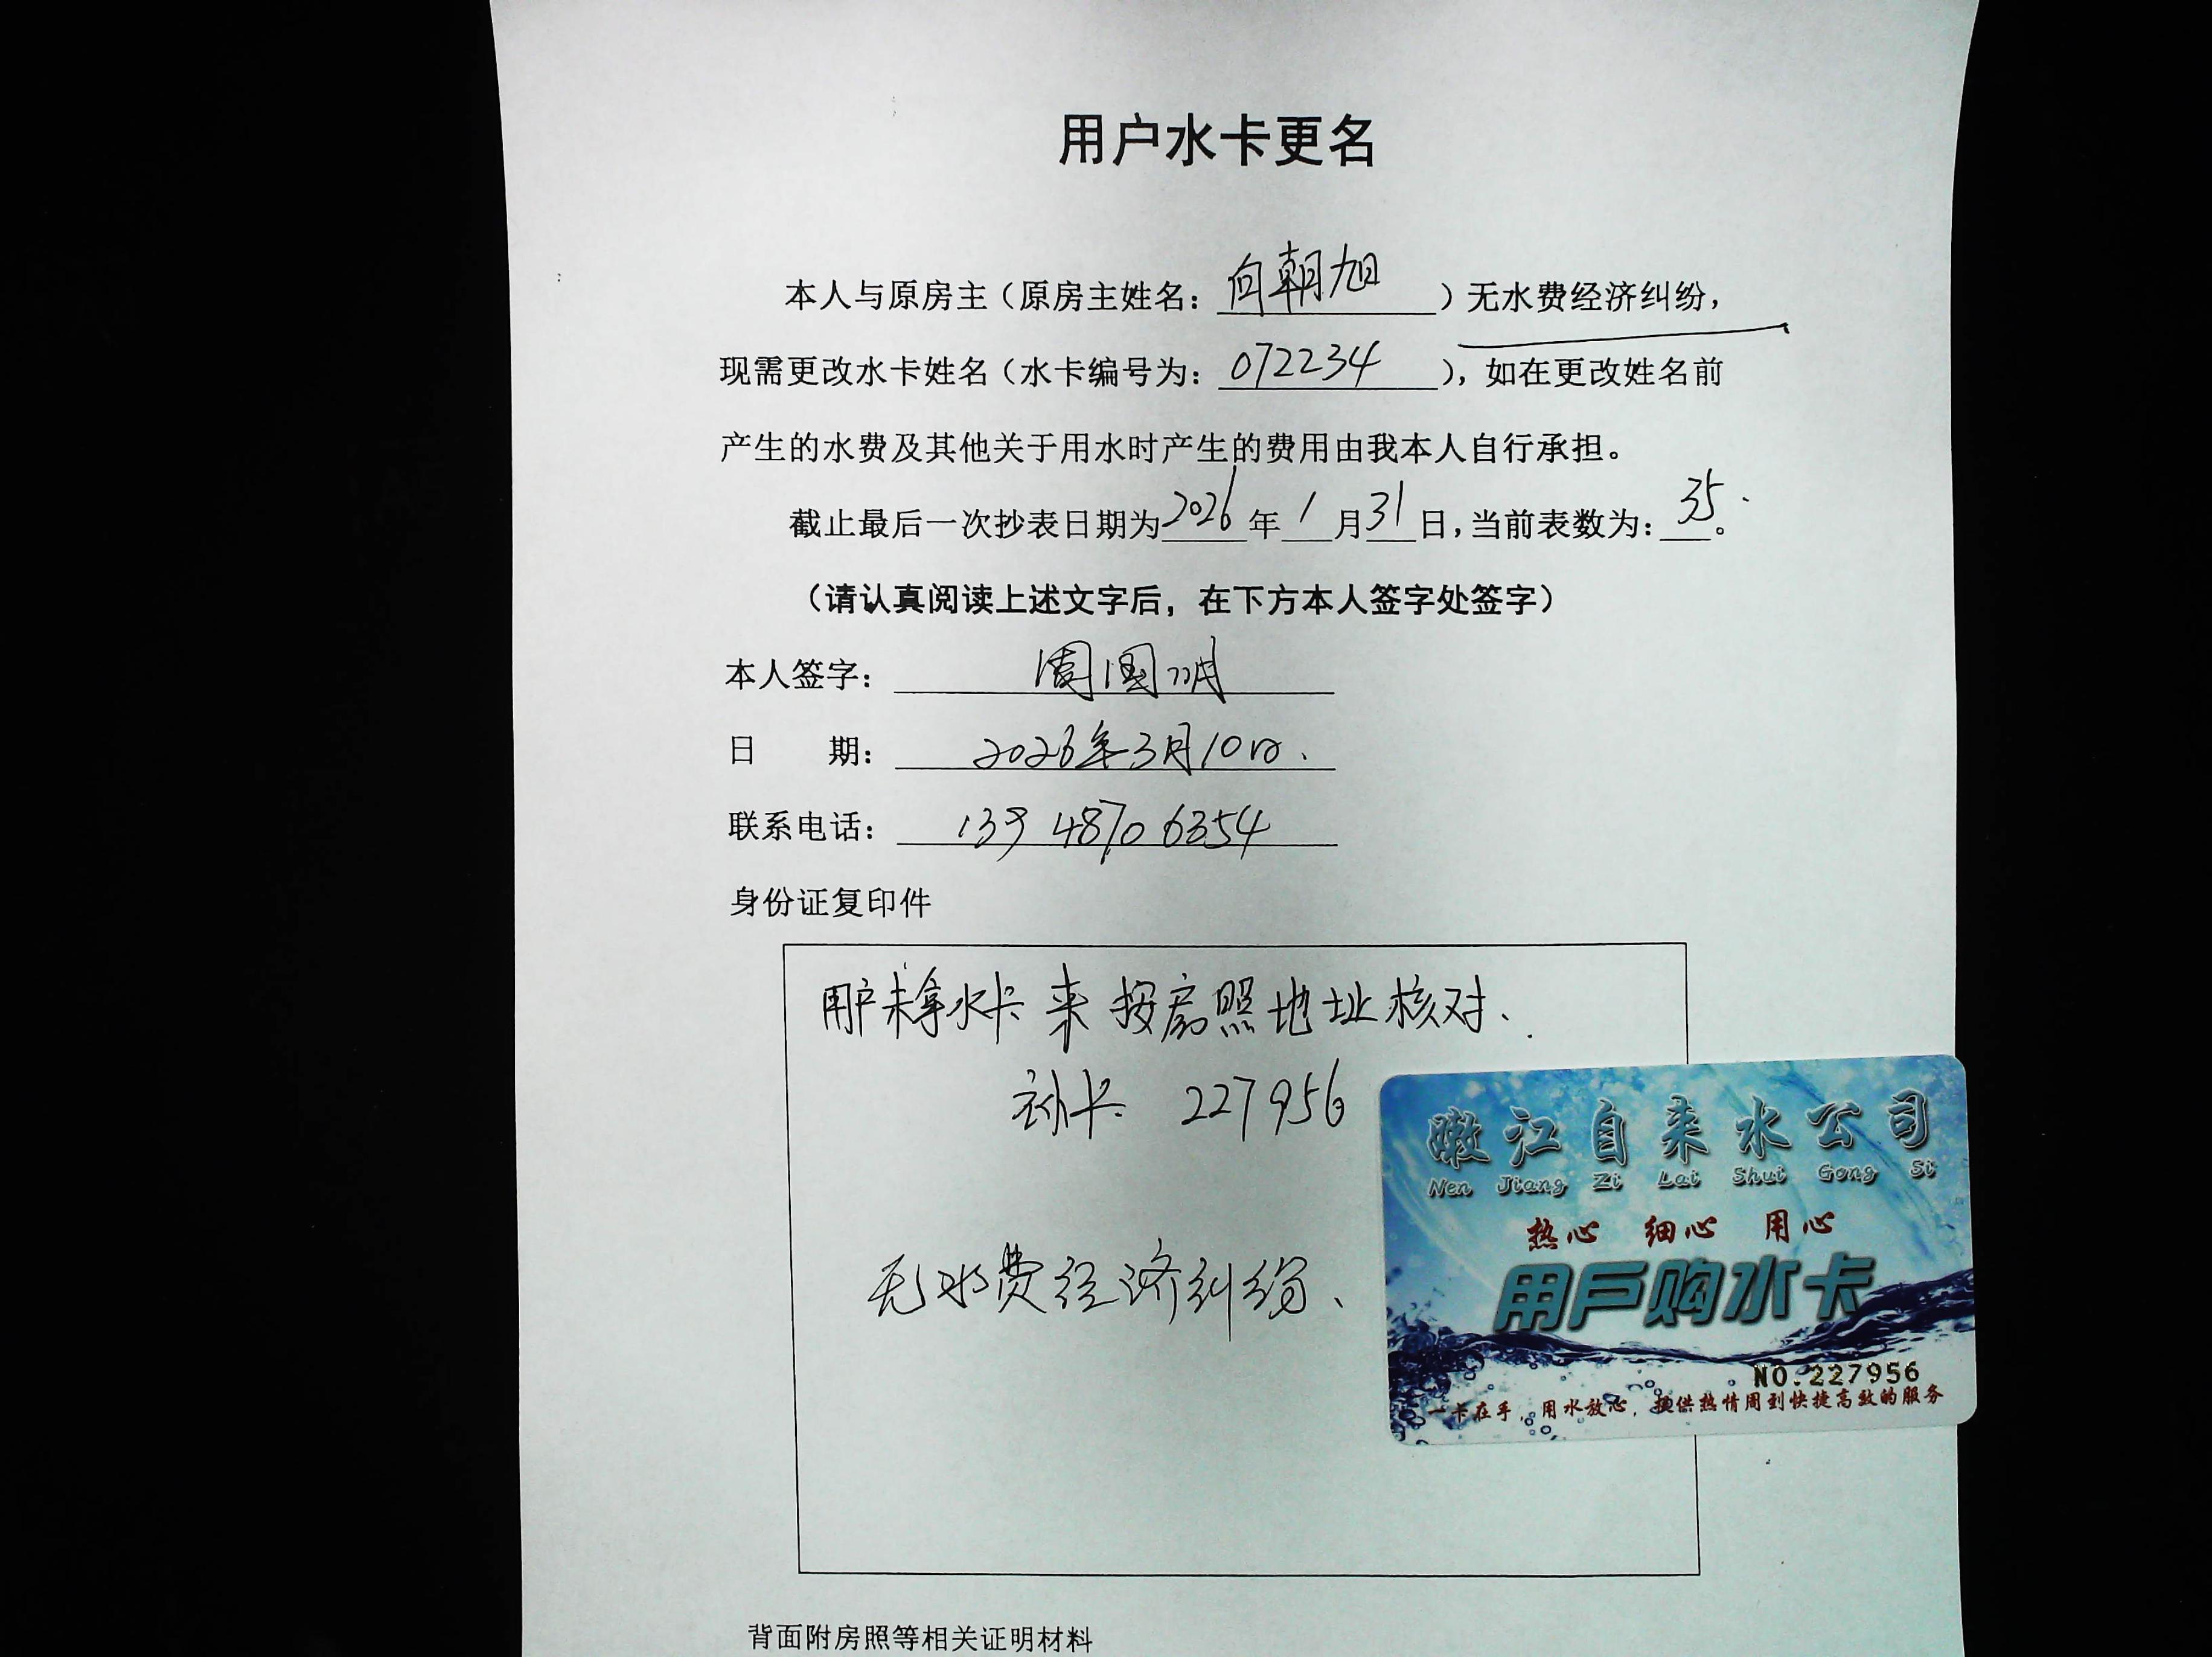 用户水卡更名
本人与原房主（原房主姓名：向朝旭）无水费经济纠纷，
现需更改水卡姓名（水卡编号为：072234），如在更改姓名前
产生的水费及其他关于用水时产生的费用由我本人自行承担。
截止最后一次抄表日期为2026年1月31日，当前表数为：35。
（请认真阅读上述文字后，在下方本人签字处签字）
本人签字：周国明
日 期：2026年3月10日.
联系电话：139 4870 6354
身份证复印件
用户未拿水卡来按房照地址核对、
补卡 227956
无水费经济纠纷、
嫩江自来水公司
Nen Jiang Zi Lai Shui Gong Si
热心 细心 用心
用戶购水卡
NO.227956
一卡在手，用水放心，提供热情周到快捷高效的服务
背面附房照等相关证明材料